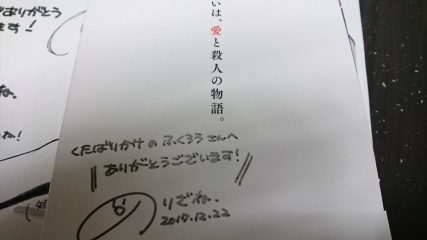 いは、愛と殺人の物語。
くたばりかけのふくろうさんへ
ありがとうございます!
りざね、
2017.12.22
ありがとう
ます!
ね。
ね!